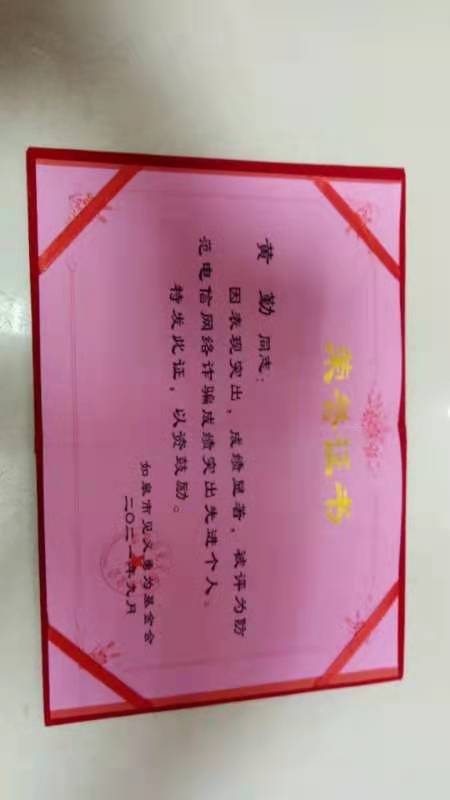 荣誉证书
黄勤同志：
因表现突出，成绩显著，被评为防
范电信网络诈骗成绩突出先进个人。
特发此证，以资鼓励。
如皋市见义勇为基金会
二〇二一年九月